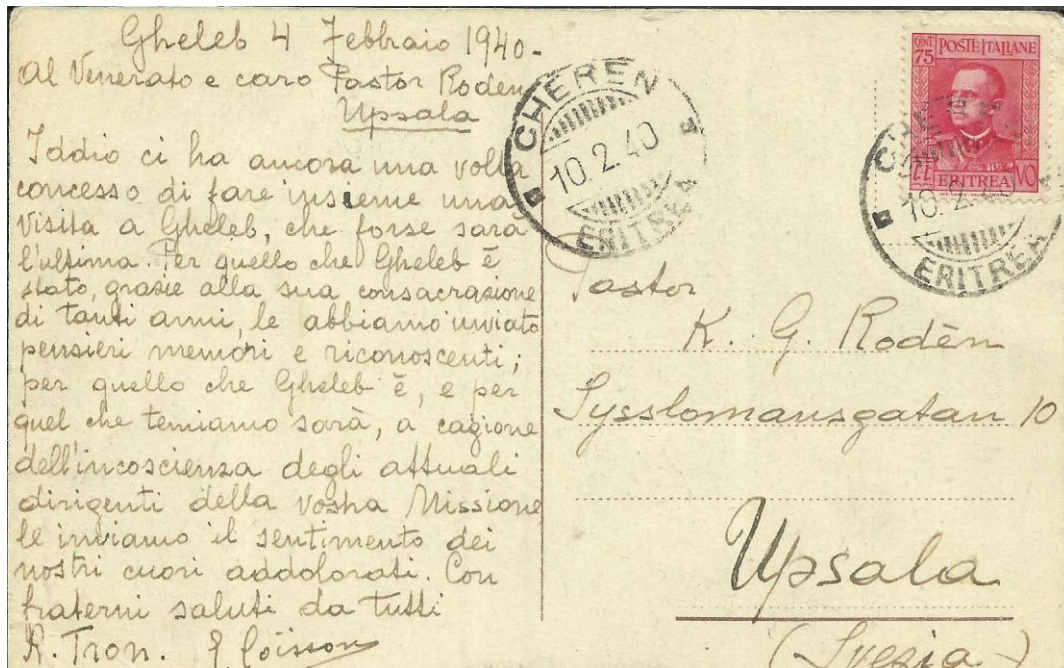 Gheleb 4 Febbraio 1940-
Al Venerato e caro Pastor Roden
Upsala
Iddio ci ha ancora una volta
concesso di fare insieme una
visita a Gheleb, che forse sarà
l'ultima. Per quello che Gheleb è
stato, grazie alla sua consacrazione
di tanti anni, le abbiamo inviato
pensieri memori e riconoscenti;
per quello che Gheleb è, e per
quel che temiamo sarà, a cagione
dell'incoscienza degli attuali
dirigenti della vostra Missione
le inviamo il sentimento dei
nostri cuori addolorati. Con
fraterni saluti da tutti
R. Tron. E Coïsson
CHEREN
10.2.40
ERITREA
CENT 75 POSTE ITALIANE
ERITREA
CHEREN
10.2.40
ERITREA
Pastor
K. G. Rodén
Sysslomansgatan 10
Upsala
(Svezia